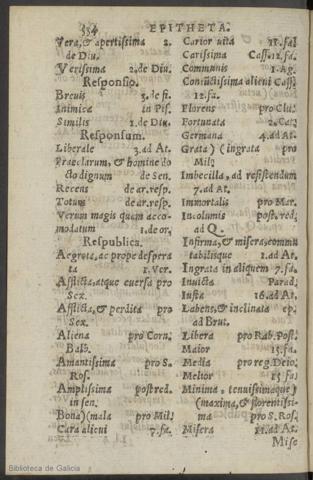 334 EPITHETA.
Vera, & apertissima 2.
de Diu.
Verissima 2. de Diu.
Responsio.
Breuis 3. de fi.
Inimica in Pis.
Similis 1. de Diu.
Responsum.
Liberale 3. ad At.
Praeclarum, & homine do
cto dignum de Sen.
Recens de ar. resp.
Totum de ar. resp.
Verum magis quam acco-
modatum 1. de or,
Respublica.
Aegrota, ac prope despera
ta 1. Ver.
Afflicta, atque euersa pro
Sex.
Afflicta, & perdita pro
Sex.
Aliena pro Corn.
Balb.
Amantissima pro S.
Ros.
Amplissima post red.
in sen.
Bona) (mala pro Mil:
Cara alicui 7. fa.
Carior uita 15. fa.
Carissima Cass. 12. fa.
Communis 1. Ag.
Coniũctissima alicui Cass.
12. fa.
Florens pro Clu.
Fortunata 2. Cat.
Germana 4. ad At.
Grata) (ingrata pro
Mil:
Imbecilla, ad resistendum
7. ad At.
Immortalis pro Mar.
Incolumis post. red.
ad Q.
Infirma, & misera, commu
tabilisque 1. ad At.
Ingrata in aliquem 7. fa.
Inuicta Parad.
Iusta 16. ad At.
Labens, & inclinata ep.
ad Brut.
Libera pro Rab. Post.
Maior 15. fa.
Media pro reg. Deio.
Melior 15. fa.
Minima, tenuissimaque)
(maxima, & florentissi-
ma pro S. Ros.
Misera 11. ad At.
Mise
Biblioteca de Galicia